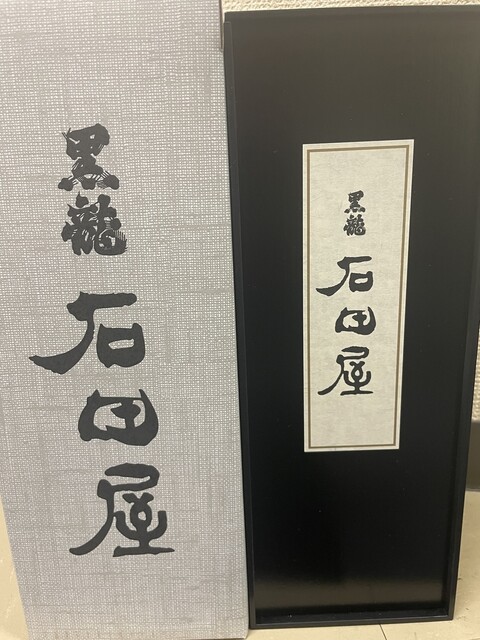 黒龍
石田屋
黒龍
石田屋